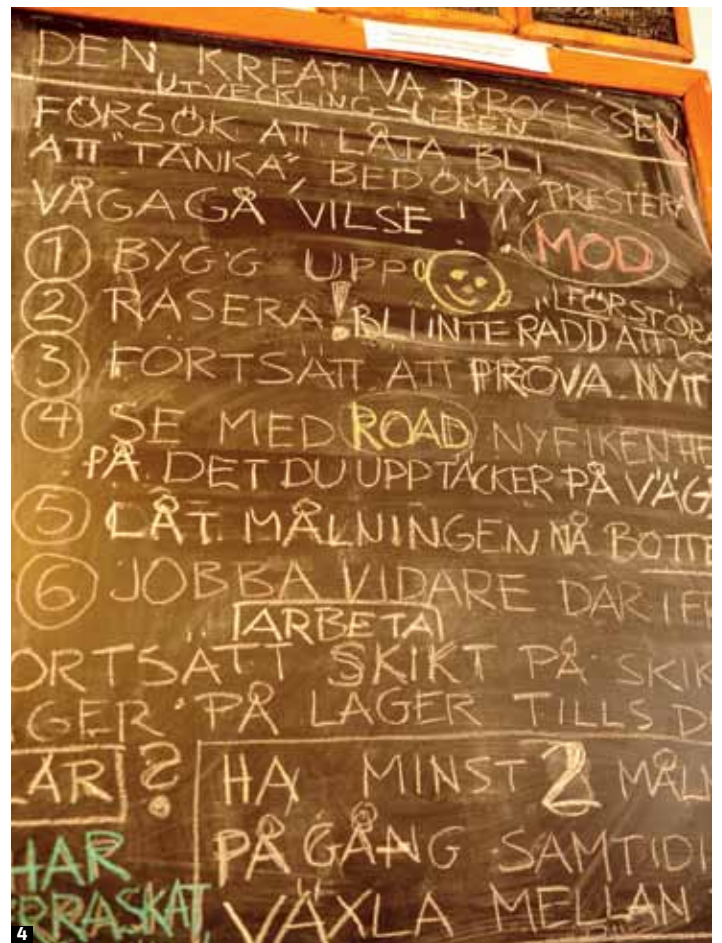 DEN KREATIVA PROCESSEN
UTVECKLING-LEKEN
FÖRSÖK ATT LÅTA BLI
ATT "TÄNKA", BEDÖMA, PRESTERA
VÅGA GÅ VILSE!
MOD
1 BYGG UPP
2 RASERA! BLI INTE RÄDD ATT
"FÖRSTÖRA
3 FORTSÄTT ATT PRÖVA NYTT
4 SE MED ROAD NYFIKENHE
PÅ DET DU UPPTÄCKER PÅ VÄGA
5 LÅT MÅLNINGEN NÅ BOTTE
6 JOBBA VIDARE DÄRIFR
ARBETA
ORTSÄTT SKIKT PÅ SKIK
AGER PÅ LAGER TILLS DU
LAR?
HA MINST 2 MÅLN
PÅ GÅNG SAMTIDI
VÄXLA MELLAN
HAR
ERRASKAT
4